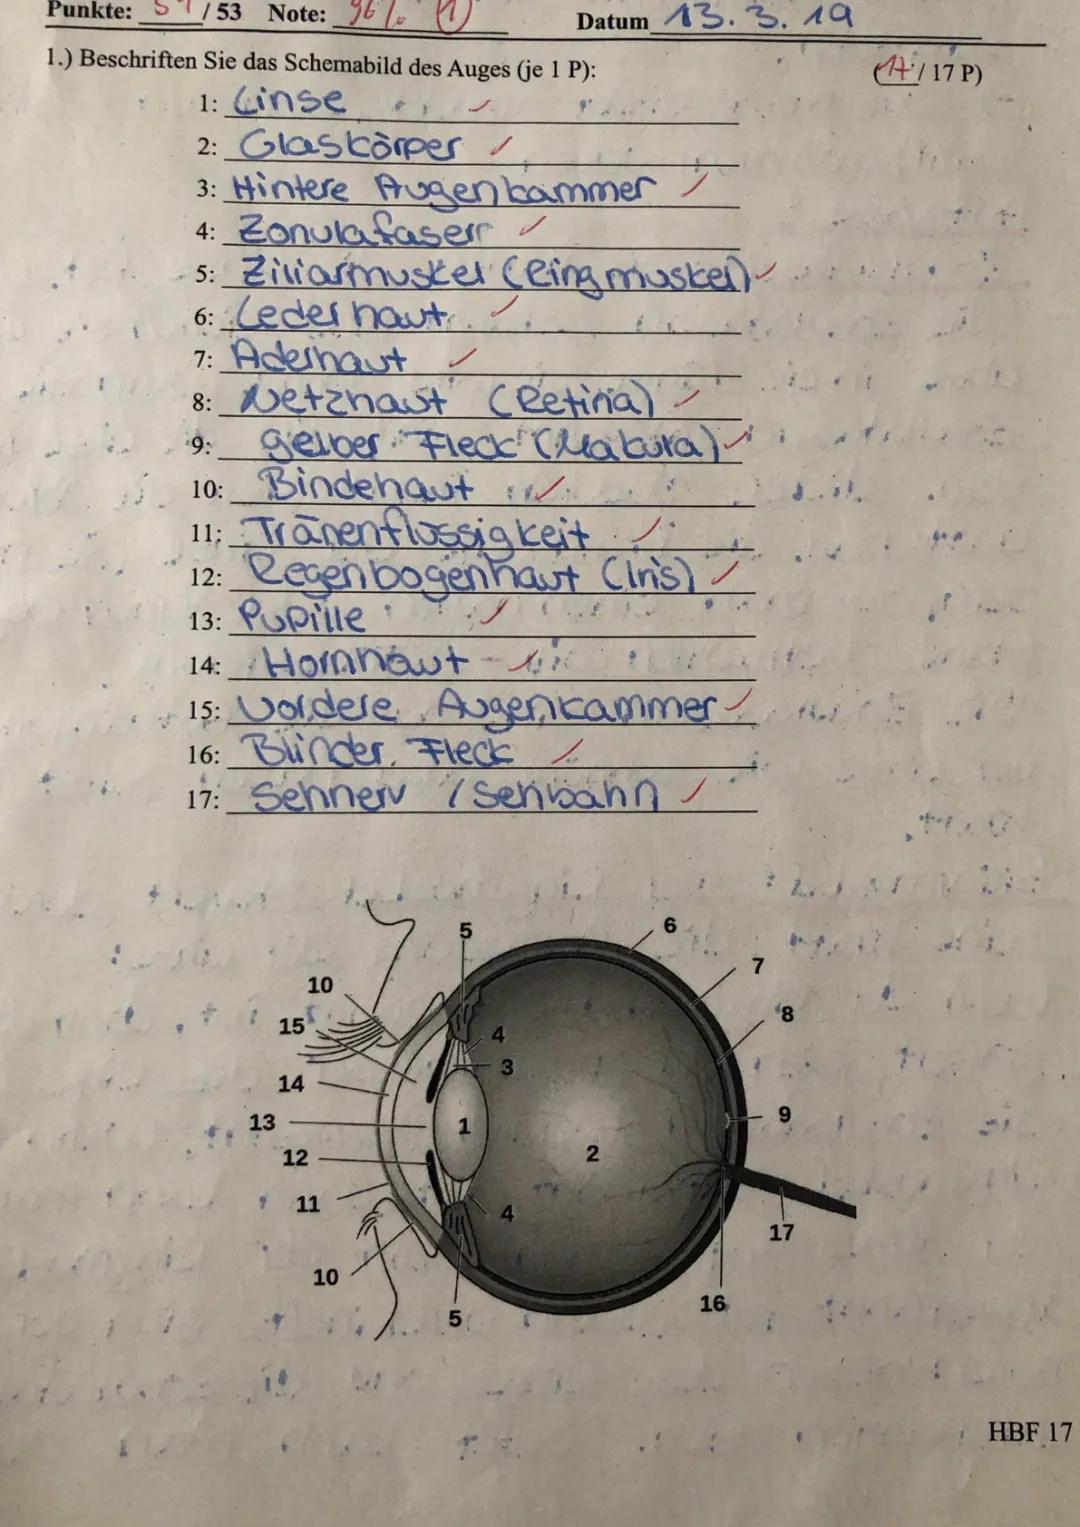 Punkte: 51 / 53 Note: 96% (1) Datum 13.3.19
1.) Beschriften Sie das Schemabild des Auges (je 1 P): (17 / 17 P)
1: Linse
2: Glaskörper
3: Hintere Augenkammer
4: Zonulafasern
5: Ziliarmuskel (Ringmuskel)
6: Lederhaut
7: Aderhaut
8: Netzhaut (Retina)
9: gelber Fleck (Makula)
10: Bindehaut
11: Tränenflüssigkeit
12: Regenbogenhaut (Iris)
13: Pupille
14: Hornhaut
15: Vordere Augenkammer
16: Blinder Fleck
17: Sehnerv / Sehbahn
5
6
7
10
8
15
4
3
14
9
13
1
12
2
11
4
17
10
16
5
HBF 17